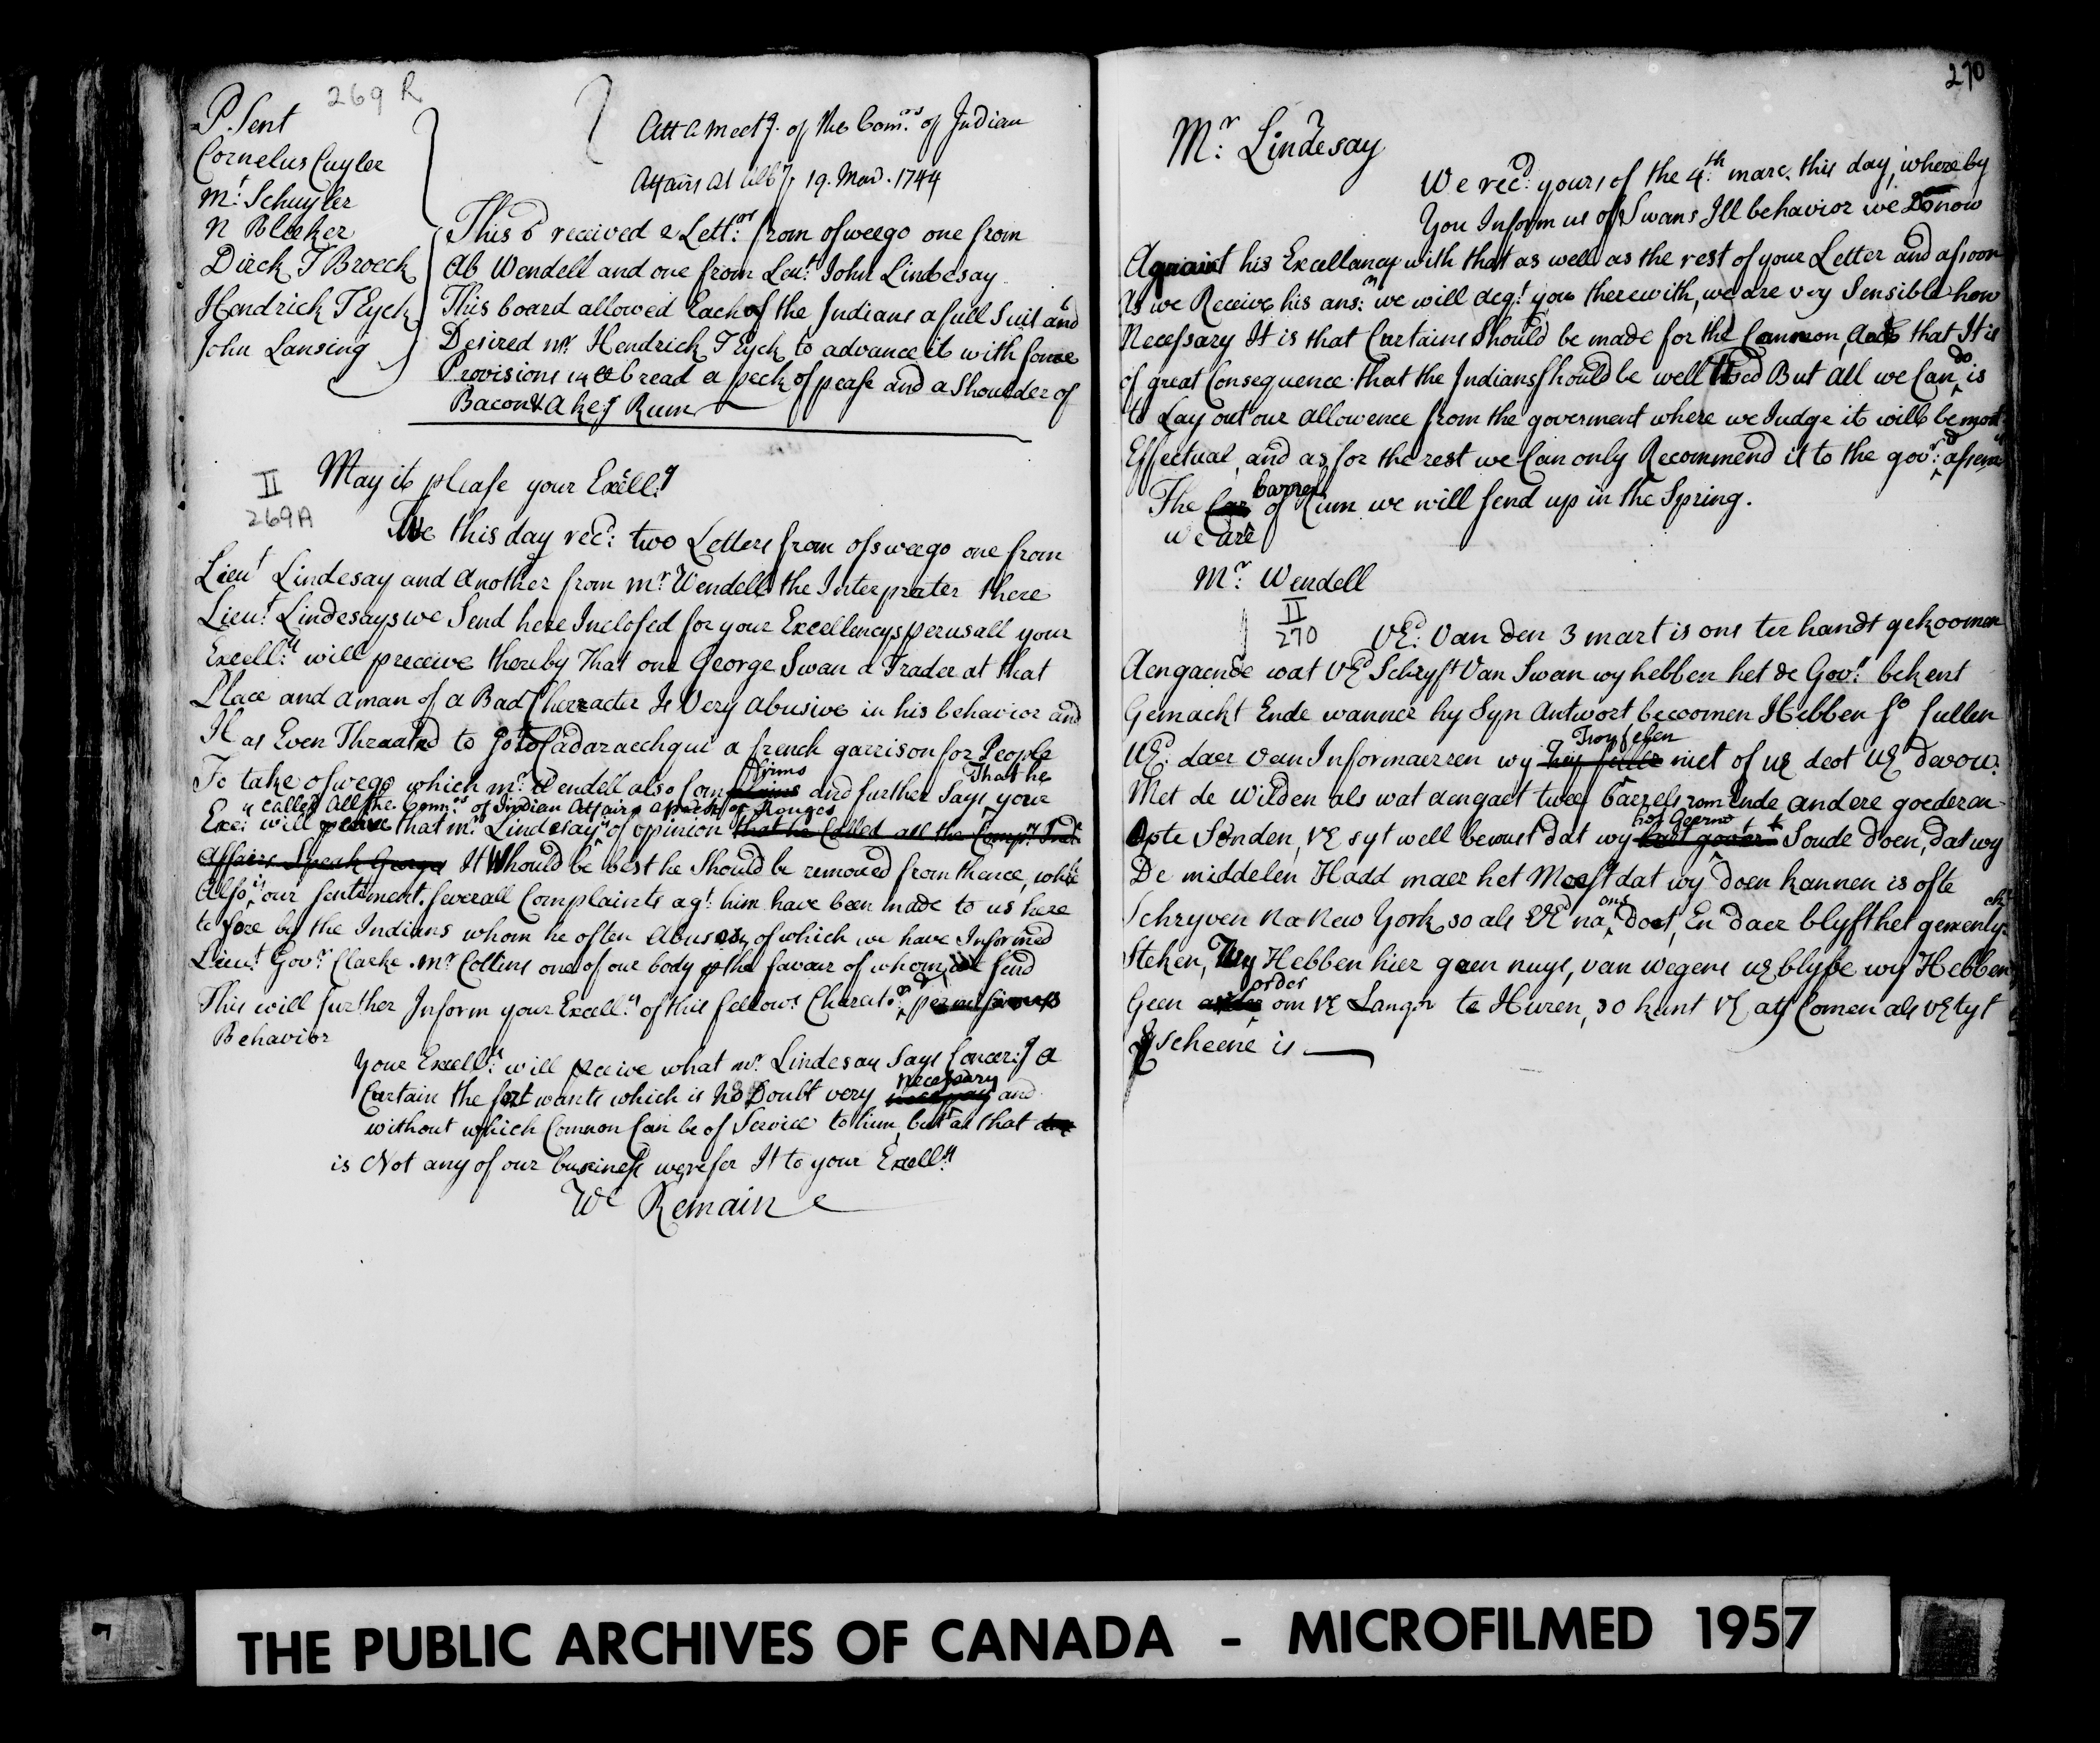 269 R
P.Sent
Cornelus Cuyler
Mr. Schuyler
N Bleeker
Dirck T Broeck
Hendrick T Eyck
John Lansing
Att a meetg. of the Comrs. of Indian
Affairs at Alby 19. Mar. 1744
This D received 2 Letters. from osweego one from
Ab Wendell and one from Leut. John Lindesay
This board allowed Each of the Indians a full Suit and
Desired mr. Hendrick T Eyck to advance it with some
Provisions bread a peck of pease and a Shoulder of
Bacon & a keg Rum
II
269A
May it please your Excelly.
We this day recd: two Letters from ossweego one from
Lieut Lindesay and another from mr. Wendell the Interprater there
Lieut. Lindesays we Send here Inclosed for your Excellencys perusall your
Excelly. will preceive thereby That one George Swan a Trader at that
Place and a man of a Bad Cherracter Is Very abusive in his behavior and
Has Even Threatned to go to Cadaraechqui a french garrison for People
To take osweego which mr. Wendell also Confirms and further Says That he
called All the Comrs. of Indian Affairs a pack of Rouges your
Exc: will that mr. Lindesay is of opinion that he Called all the Comrs. Ind.
Affairs It Should be best he Should be removed from thence, which
Also is our sentiment. severall Complaints agt. him have been made to us here
tofore by the Indians whom he often Abuses, of which we have Informed
Lieut. Govr. Clarke. mr. Collins one of our body p the favour of whom we send
This will further Inform your Excelly. of this fellows Charactr.
Behavior
Your Excelly. will preceive what mr. Lindesay Says Concerg. a
Curtain the fort wants which is no Doubt very necessary and
without which Common Can be of Service to him, but as that
is Not any of our business we refer It to your Excelly.
We Remain
270
Mr. Lindesay
We recd. yours of the 4th. marc. this day, whereby
You Inform us of Swans Ill behavior we Do now
Aquaint his Excellency with that as well as the rest of your Letter and assoon
As we Receive his ansr. we will aeqt. you therewith, we are very Sensible how
Necessary It is that Curtains Should be made for the Common, And that It is
of great Consequence that the Indians should be well Used But all we Can do is
to Lay out our allowence from the goverment where we Judge it will be most
Effectual, and as for the rest we Can only Recommend it to the govr.
The barrel of Rum we will send up in the Spring.
we are
Mr. Wendell
II
270
VEd. Van den 3 mart is ons ter handt gekoomen
Aengaende wat VEd Schryft Van Swan wy hebben het de Govr. bekent
Gemackt Ende wanner hy Syn Antwort becoomen Hebben so sullen
UEd. daer van Informaerren wy Twyfelen niet of UE deot UE Devour.
Met de Wilden als wat aengaet twee barrels rom Ende andere goederen
Opte Senden, VE syt well bewust dat wy het Geerne Soude doen, dat wy
De middelen Hadd maer het Meest dat wy doen kannen is ofte
Schryven Na New York, so als VE na ons doet, En daer blyft het gemenlyck
Steken, Wy Hebben hier geen nuys, van wegens UE blyve wy Hebben
Geen order om VE Langr. te Huren, so kant VE aff Comen als VE tyt
Exscheene is
7
THE PUBLIC ARCHIVES OF CANADA - MICROFILMED 1957